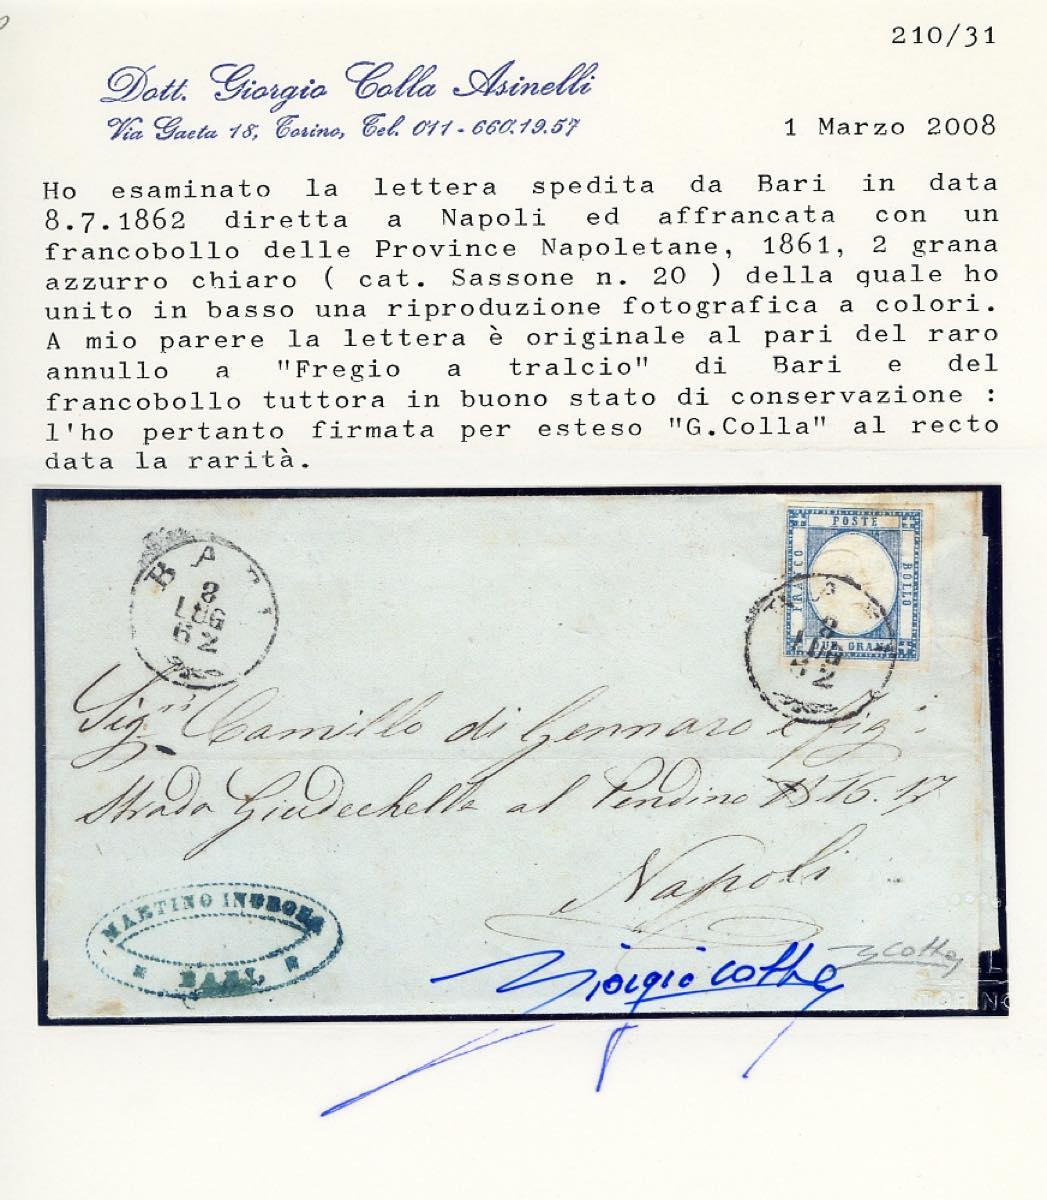 210/31
Dott. Giorgio Colla Asinelli
Via Gaeta 18, Torino, Tel. 011-660.19.57
1 Marzo 2008
Ho esaminato la lettera spedita da Bari in data
8.7.1862 diretta a Napoli ed affrancata con un
francobollo delle Province Napoletane, 1861, 2 grana
azzurro chiaro ( cat. Sassone n. 20 ) della quale ho
unito in basso una riproduzione fotografica a colori.
A mio parere la lettera è originale al pari del raro
annullo a "Fregio a tralcio" di Bari e del
francobollo tuttora in buono stato di conservazione :
l'ho pertanto firmata per esteso "G.Colla" al recto
data la rarità.
BARI
8
LUG
62
POSTE
FRANCO
BOLLO
GRANA
8
LUG
62
Sigri Camillo di Gennaro e fig:
Strada Giudechella al Pendino 15.16.17
Napoli
MARTINO
BARI
Giorgio Colla
G Colla